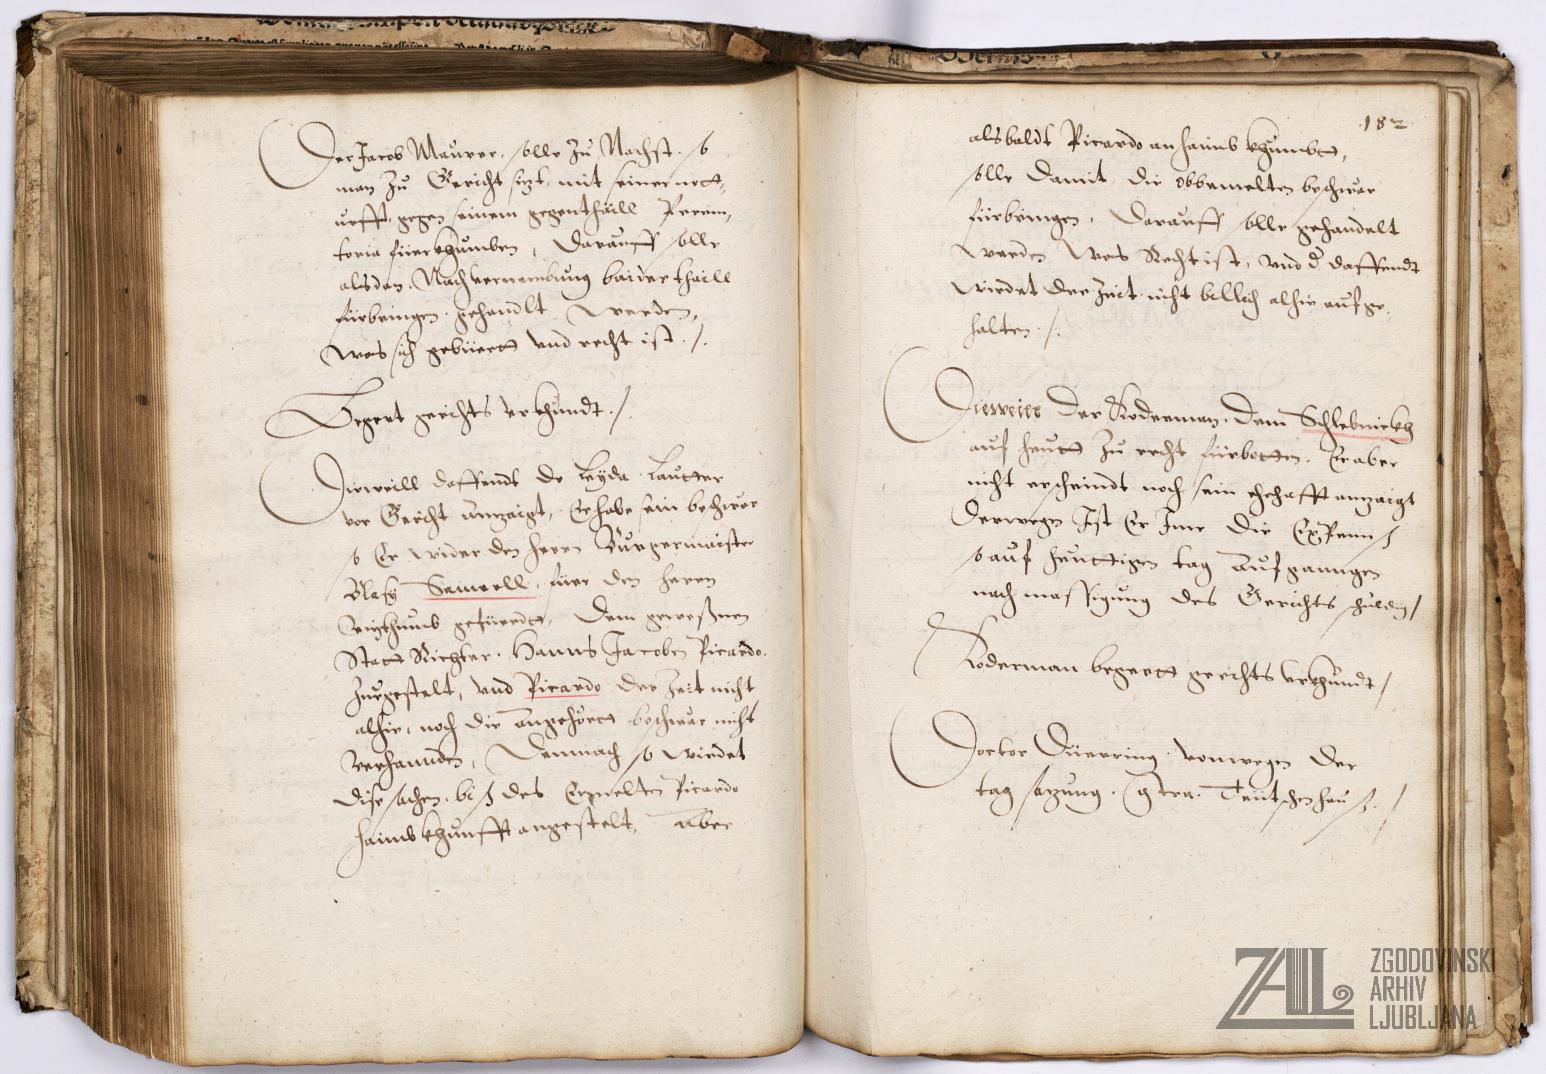 Der Jacob Maurer, solle zu Nachst, so
man zu Gericht sizt, mit seiner nott,
urfft, gegen seinem gegenthaill Perem,
toria fürkhumben, darauff solle
alsdan, Nach vernembung baider thaill
fürbringen, gehandlt werden,
was sich gebüertt und recht ist ./.
Begert gerichts urkhundt ./.
Dieweill daffendt de Leyda Lautter
vor Gericht anzaigt, Er habe sein beschwär
so Er wider den herrn Burgermaister
Blasy Samerell, für den herrn
Vizthumb gefüerdt, Dem gewesznen
Statt Richter, Hanns Jacoben Picardo,
Zuegestelt, und Picardo der Zeit nicht
alhie, noch die angehörtt beschwär nicht
verhannden, Demnach so wirdet
dise sachen, bisz des Ermelten Picardo
haimbkhunfft angestelt, Aber
182
alsbaldt Picardo anhaimbs khumbtt,
solle damit, die obbemelten beschwär
fürbringen, darauff solle gehandelt
werden was Recht ist, und der daffendt
wirdet der Zeit nicht billich alhie aufge,
halten ./.
Dieweill der Koderman, dem Schlebnickh
auf heutt zu recht fürbotten, Er aber
nicht erscheindt noch sein ehehafft anzaigt
Derwegen Ist Er Ime die Expenns
so auf heuttigen tag aufganngen
nach massigung des Gerichts schuldig /
Koderman begertt gerichts Urkhundt /
Doctor Düerring, vonwegen der
tag sazung, Teutschenhausz. /
ZAL
ZGODOVINSKI
ARHIV
LJUBLJANA